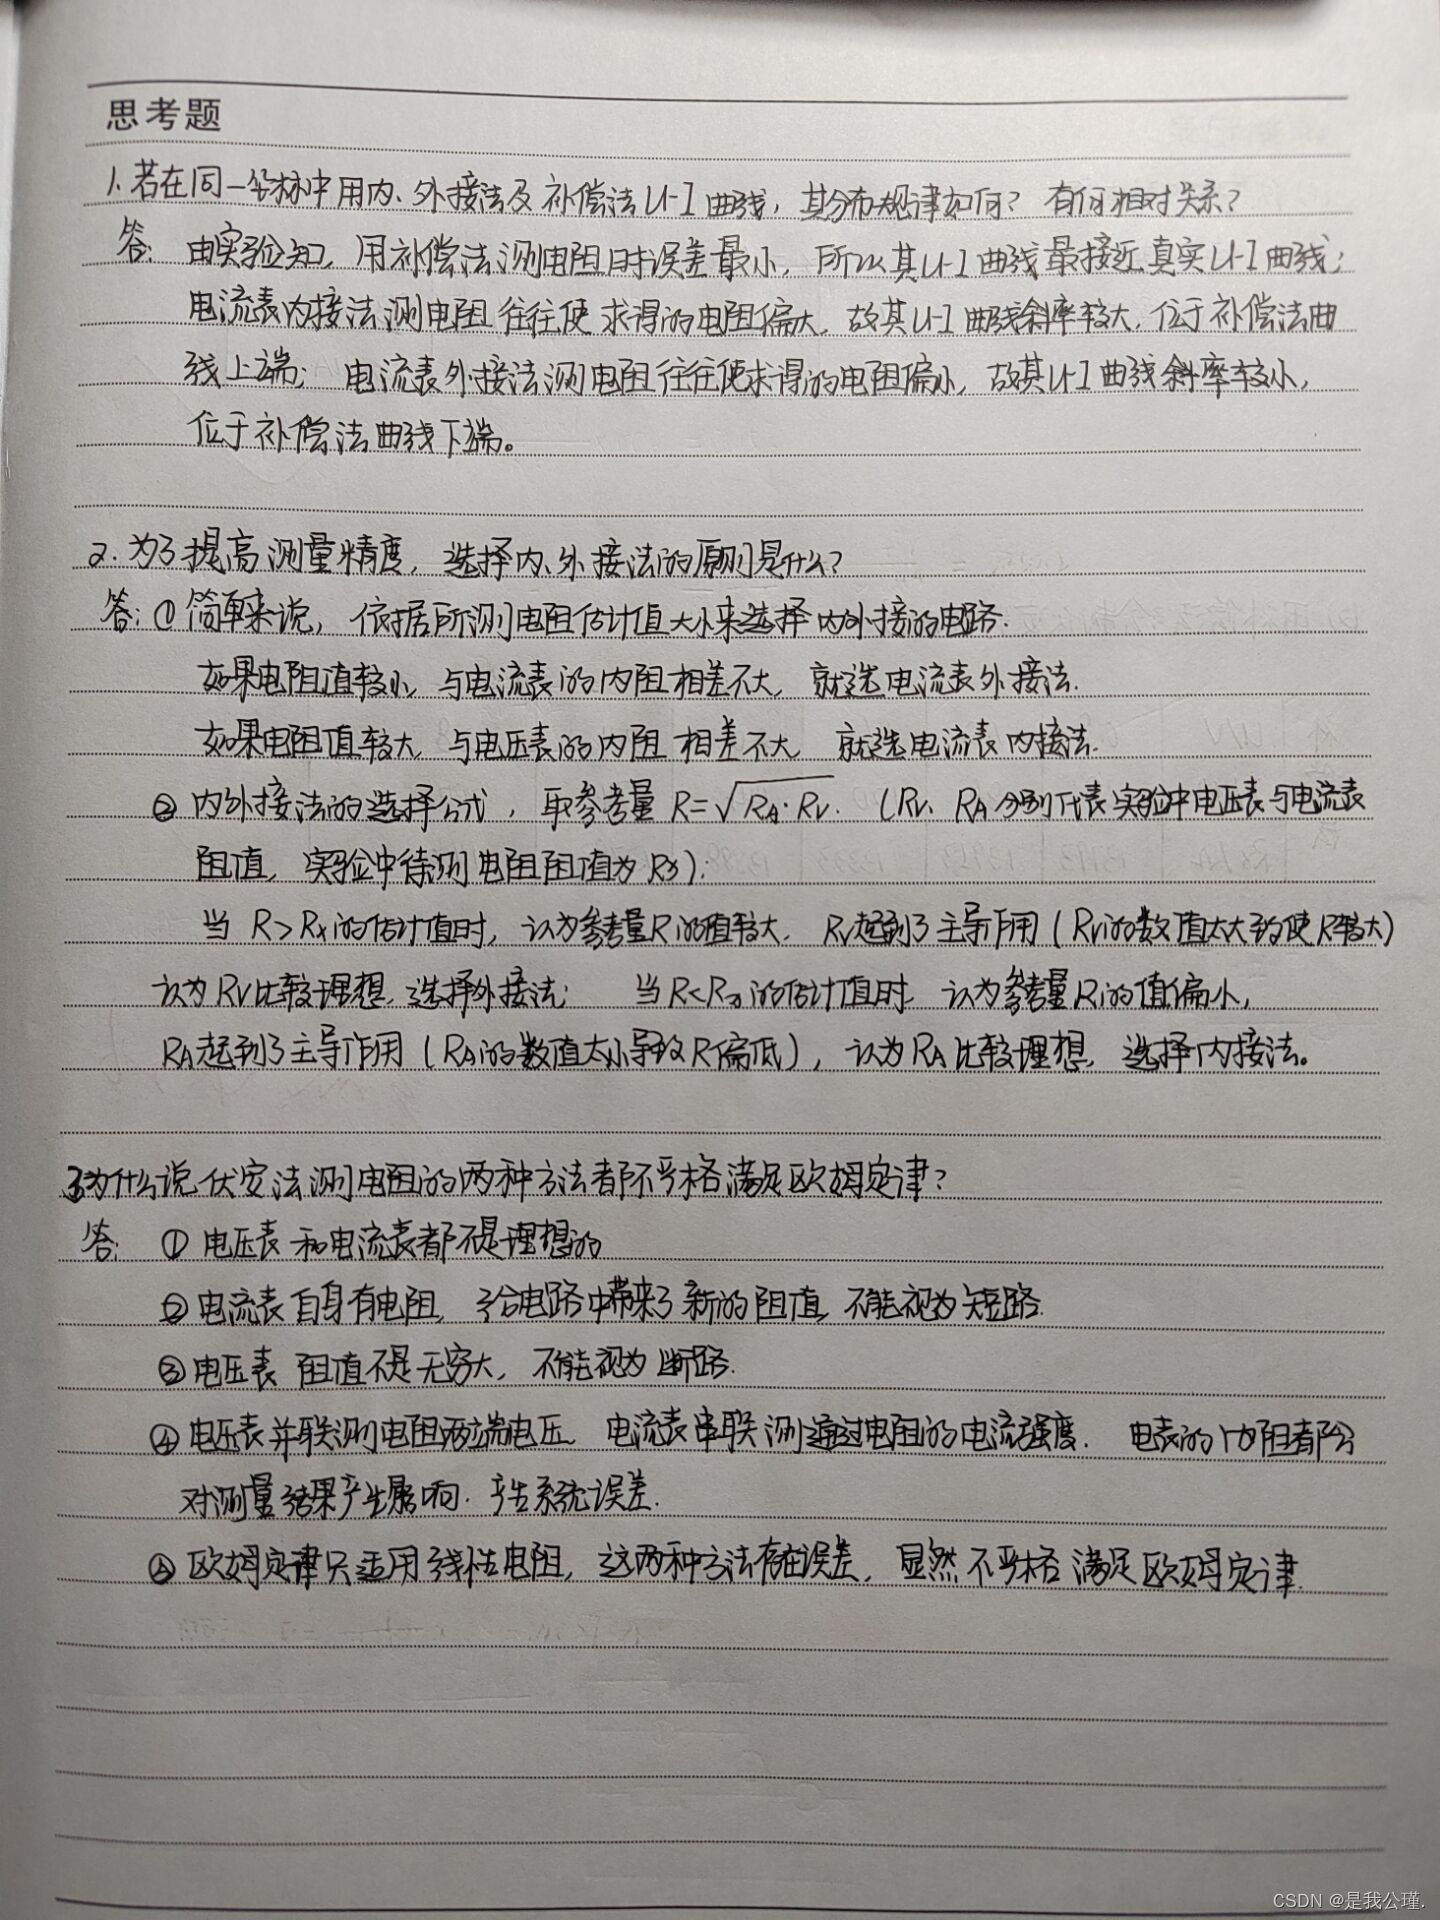 思考题
1.若在同一坐标中用内、外接法及补偿法U-I曲线，其分布规律如何？有何相对关系？
答：由实验知，用补偿法测电阻时误差最小，所以其U-I曲线最接近真实U-I曲线；
电流表内接法测电阻往往使求得的电阻偏大，故其U-I曲线斜率较大，位于补偿法曲
线上端；电流表外接法测电阻往往使求得的电阻偏小，故其U-I曲线斜率较小，
位于补偿法曲线下端。
2.为了提高测量精度，选择内、外接法的原则是什么？
答：①简单来说，依据所测电阻估计值大小来选择内外接的电路.
如果电阻值较小，与电流表的内阻相差不大，就选电流表外接法.
如果电阻值较大，与电压表的内阻相差不大，就选电流表内接法.
②内外接法的选择公式，取参考量R=√RA·RV.（RV、RA分别代表实验中电压表与电流表
阻值，实验中待测电阻阻值为Rx）：
当R>Rx的估计值时，认为参考量R的值较大，RV起到了主导作用（RV的数值太大致使R较大）
认为RV比较理想，选择外接法；当R<Rx的估计值时，认为参考量R的值偏小，
RA起到了主导作用（RA的数值太小导致R偏低），认为RA比较理想，选择内接法。
3为什么说伏安法测电阻的两种方法都不严格满足欧姆定律？
答：①电压表和电流表都不是理想的
②电流表自身有电阻，给电路中带来了新的阻值，不能视为短路.
③电压表阻值不是无穷大，不能视为断路.
④电压表并联测电阻两端电压，电流表串联测通过电阻的电流强度.电表的内阻都会
对测量结果产生影响.产生系统误差.
⑤欧姆定律只适用线性电阻，这两种方法存在误差，显然不严格满足欧姆定律.
CSDN @是我公瑾.